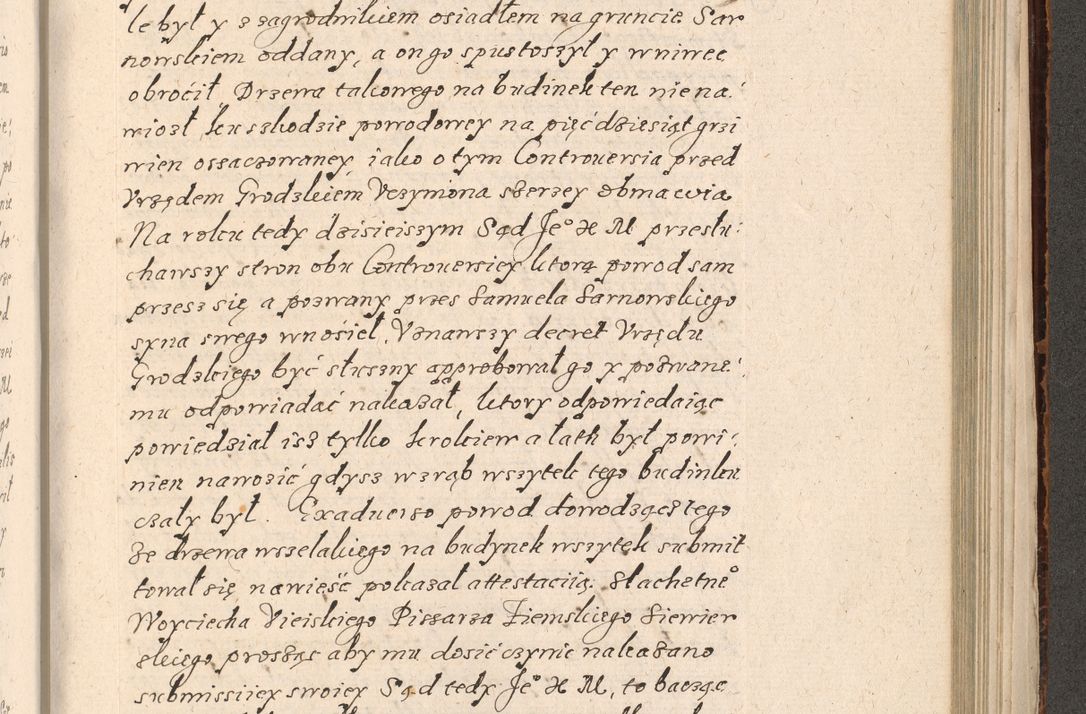 le był y z zagrodnikiem osiadłem na gruncie Sar
nowskiem oddany, a on go spustoszył y wniwec
obroćił, Drzewa takowego na budinek ten niena:
wiozł, ku szkodzie powodowey na pięćdziesiąt grzi
wien oszaczowaney, iako o tym Controuersia przed
Vrzędem Grodzkiem Vczyniona szerzey obmawia
Na roku tedy dzisieiszym Sąd Je° X M przesłu:
chawszy stron obu Controuersiey ktorą powod sam
przesz się a pozwany przes Samuela Sarnowskiego
syna swego wnośieł, Vznawszy decret Vrzędu
Grodzkiego być słuszny approbował go y pozwane:
mu odpowiadać nakazał, ktory odpowiedaiąc
powiedział isz tylko krokiew a łath był powi:
nien nawozić gdysz wzrąb wszytek tego budinku
czały był. Exaduerso powod dowodząc tego
że drzewa wszelakiego na budynek wszytek submit
tował się nawieść pokazał attestaciią Slachetne°
Woyciecha Vieiskiego Pissarza Ziemskiego Siewier
skiego prosząc aby mu dosić czynic nakazano
submissiiey swoiey Sąd tedy Je° X M, to bacząc